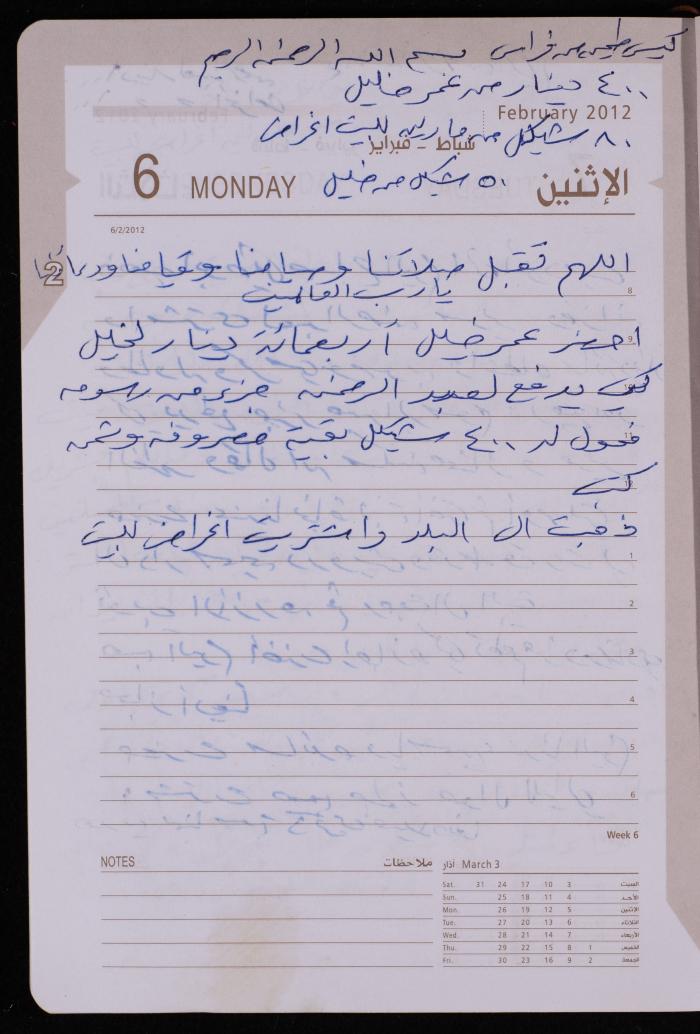 كيس طحين من فراس بسم الله الرحمن الرحيم
٤٠٠ دينار من عمر خليل
February 2012
٨٠ شيكل من مارلين للبيت اغراض
شباط - فبراير
6 MONDAY ٥٠ شيكل من خليل الإثنين
6/2/2012
اللهم تقبل صلاتنا وصيامنا وقيامنا ودعائنا
يا رب العالمين
8
احضر عمر خليل أربعمائة دينار لخليل
9
كي يدفع لعبد الرحمن جزء من رسومه
10
فحول له ٤٠٠ شيكل بقية مصروفه وثمن
11
كتب
12
ذهبت الى البلد واشتريت اغراض للبيت
1
2
3
4
5
6
Week 6
NOTES ملاحظات
March 3 آذار
Sat. 31 24 17 10 3 السبت
Sun. 25 18 11 4 الأحد
Mon. 26 19 12 5 الإثنين
Tue. 27 20 13 6 الثلاثاء
Wed. 28 21 14 7 الأربعاء
Thu. 29 22 15 8 1 الخميس
Fri. 30 23 16 9 2 الجمعة